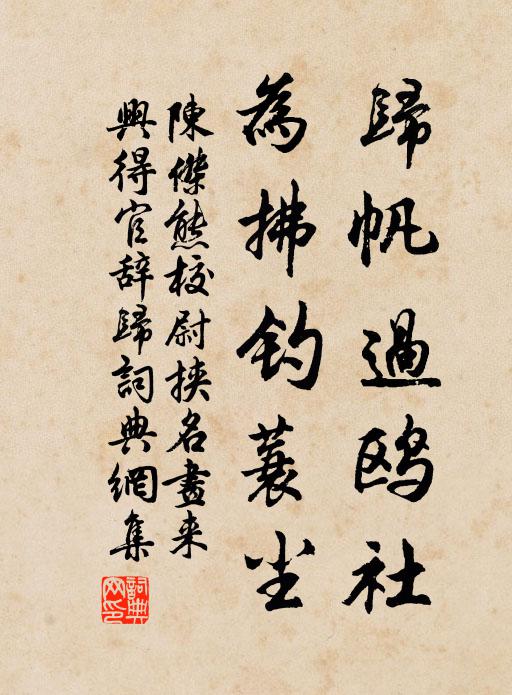 歸帆過鸥社
為拂釣蓑尘
陳傑熊校尉挾名畫来
興得官辞歸詞典網集
詞典
网印